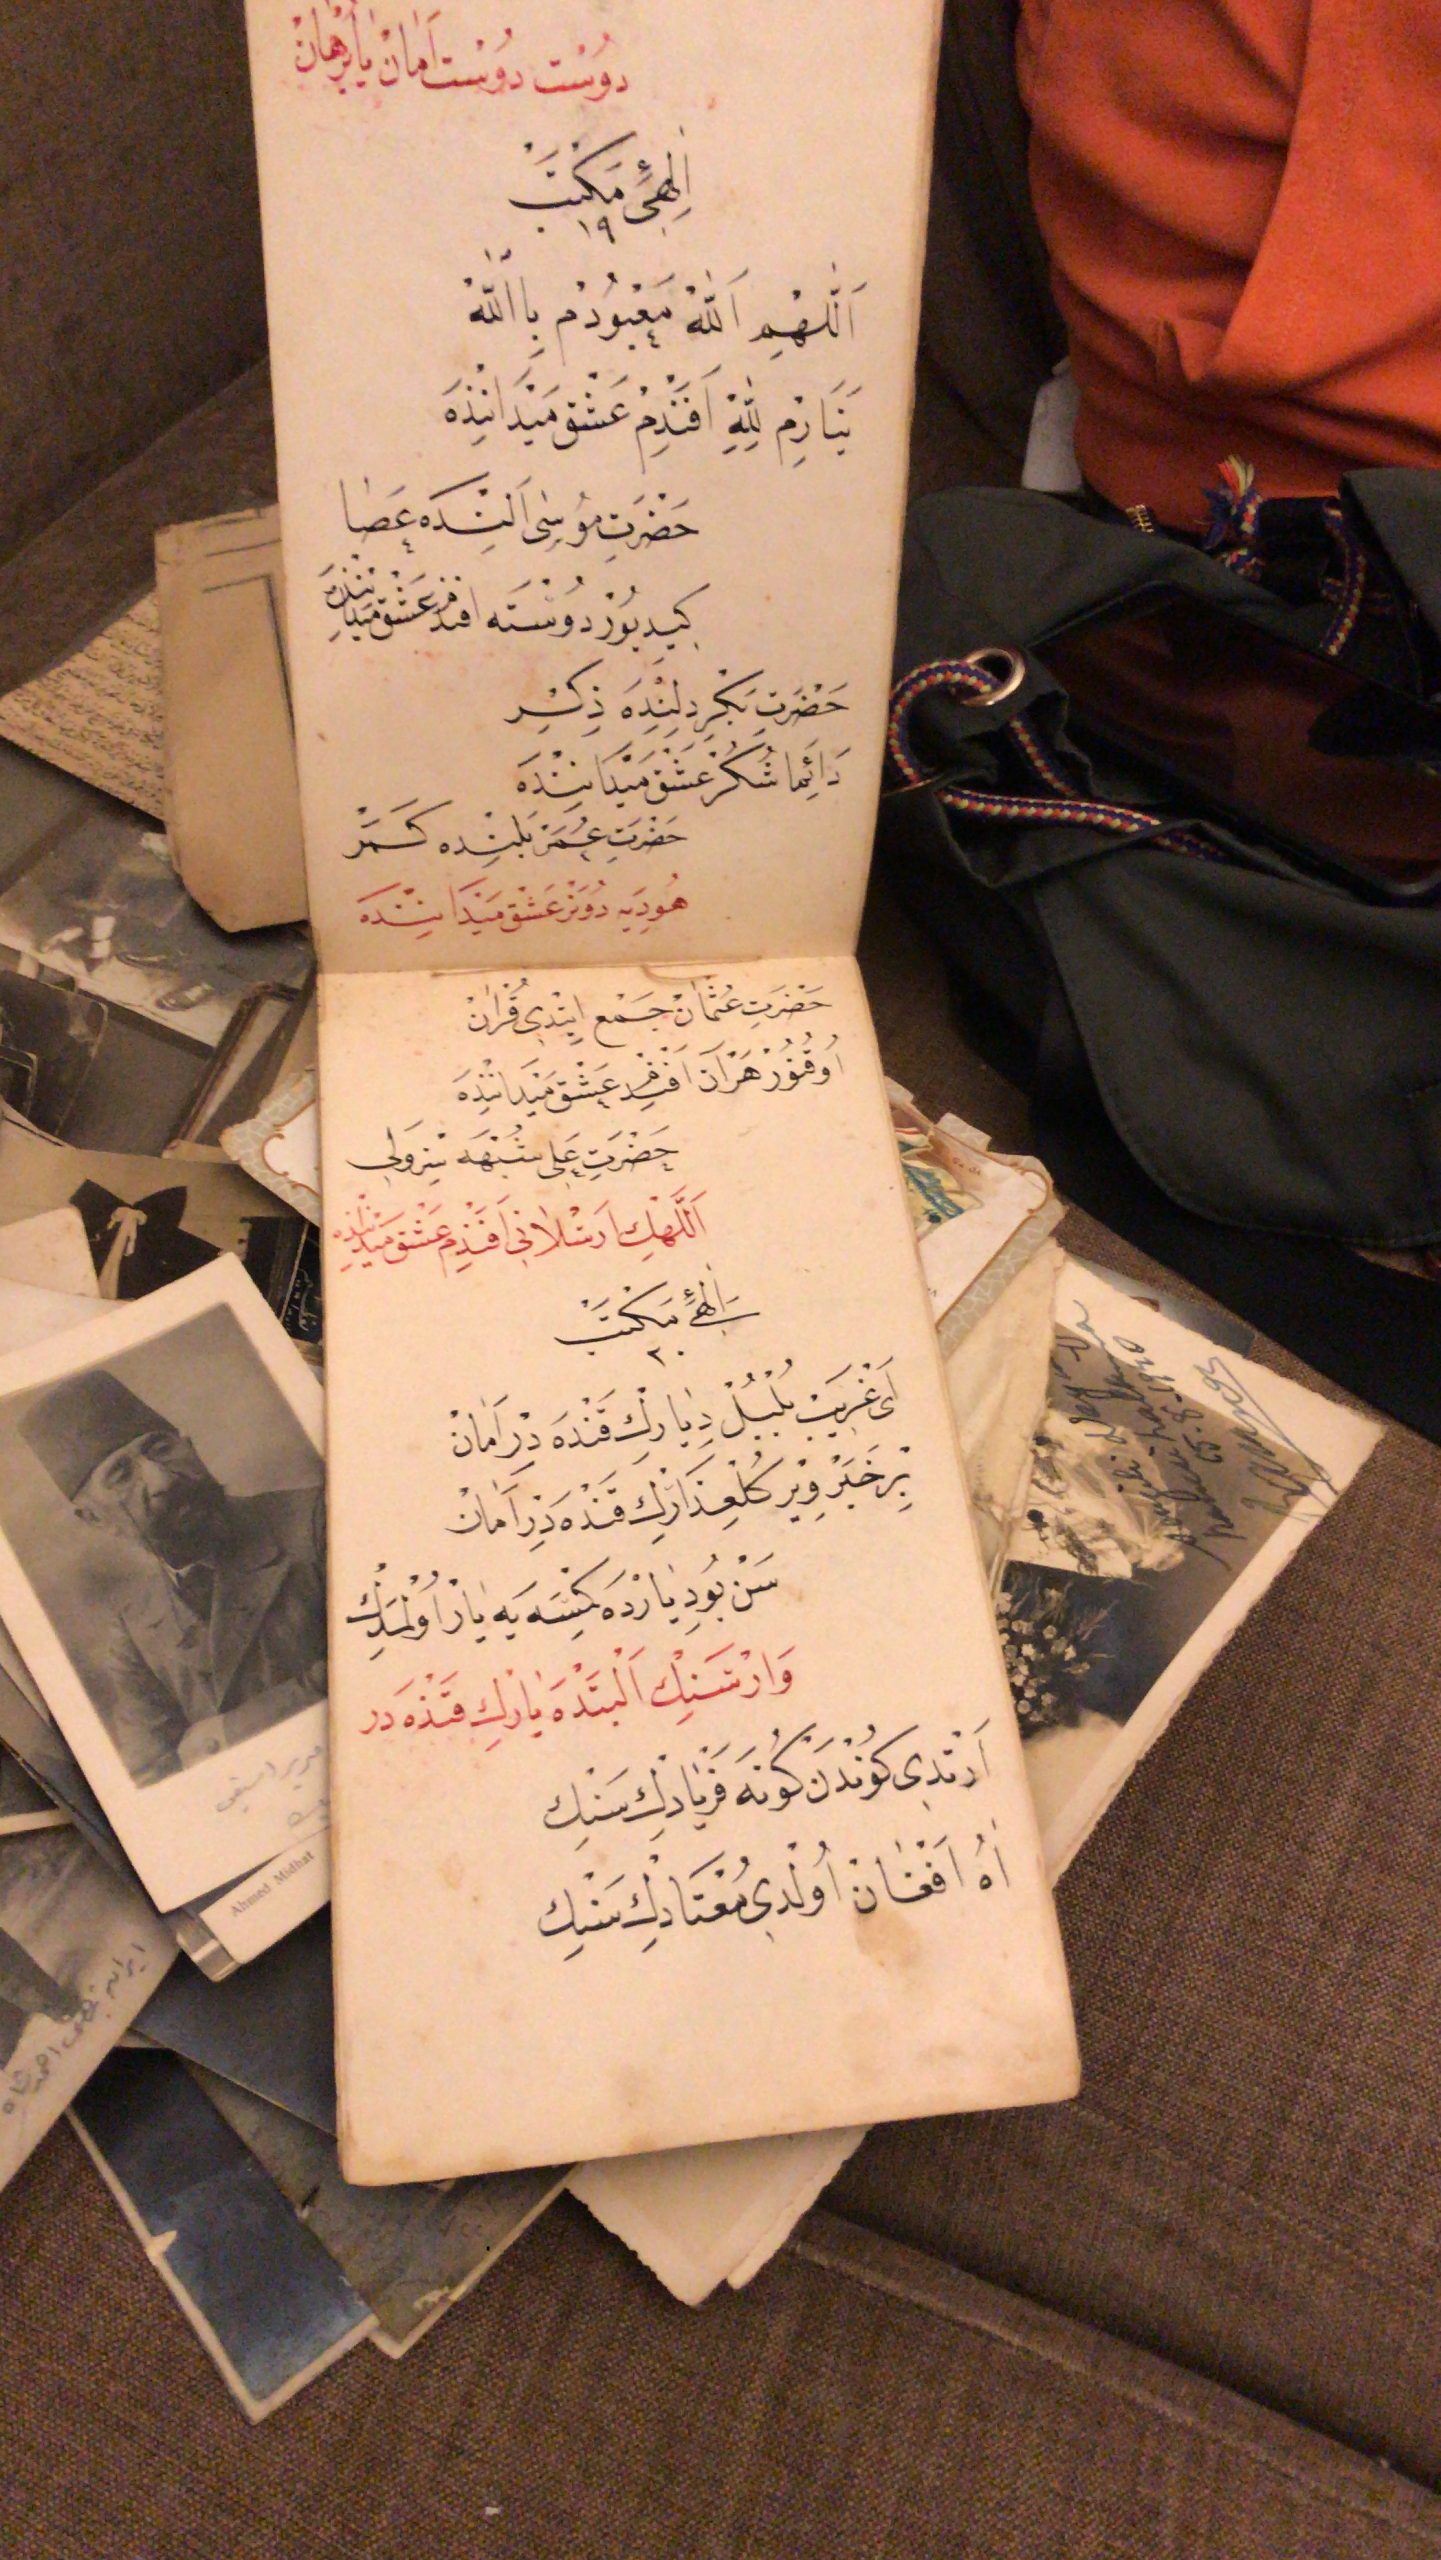 دُوسْت دُوسْت اَمَانْ يَا بُرْهَانْ
اِلٰهِىءِ مَكْتَبْ
١٩
اَللّٰهِمْ اَللّٰهْ مَعْبُودُمْ بِااللّٰهْ
يَنَارِمْ لِلّٰهِ اَفَنْدِمْ عَشْقْ مَيْدَانِنْدَه
حَضْرَتِ مُوسٰى اَلِنْدَه عَصَا
كِيدِيُورْ دُوسْتَه افندم عَشْقْ مَيْدَانِنْدَه
حَضْرَتِ بَكْرِ دِلِنْدَه ذِكِرْ
دَائِمَا شُكُرْ عَشْقْ مَيْدَانِنْدَه
حَضْرَتِ عُمَرْ بَلِنْدَه كَمَرْ
هُودِيَه دُونَرْ عَشْقْ مَيْدَانِنْدَه
حَضْرَتِ عُثْمَانْ جَمْعْ اِيتْدِى قُرْاٰنْ
اُوقُنُورْ هَرْاٰنْ اَفَنْدِمْ عَشْقْ مَيْدَانِنْدَه
حَضْرَتِ عَلِى شُبْهَه سِزْ وَلِى
اَللّٰهِكْ اَرْسْلَانِى اَفَنْدِمْ عَشْقْ مَيْدَانِنْدَه
اِلٰهِىءِ مَكْتَبْ
٢٠
اَىْ غَرِيبْ بُلْبُلْ دِيَارِكْ قَنْدَه دِرْ اَمَانْ
بِرْ خَبَرْ وِيرْ كُلْعِذَارِكْ قَنْدَه دِرْ اَمَانْ
سَنْ بُو دِيَارْدَه كِمْسَه يَه يَارْ اُولْمَدِكْ
وَارْ سَنِكْ اَلْبَتْدَه يَارِكْ قَنْدَه در
اَرْتْدِى كُونْدَنْ كُونَه فَرْيَادِكْ سَنِكْ
اٰهُ اَفْغَانْ اُولْدِى مُعْتَادِكْ سَنِكْ
Ahmed Midhat